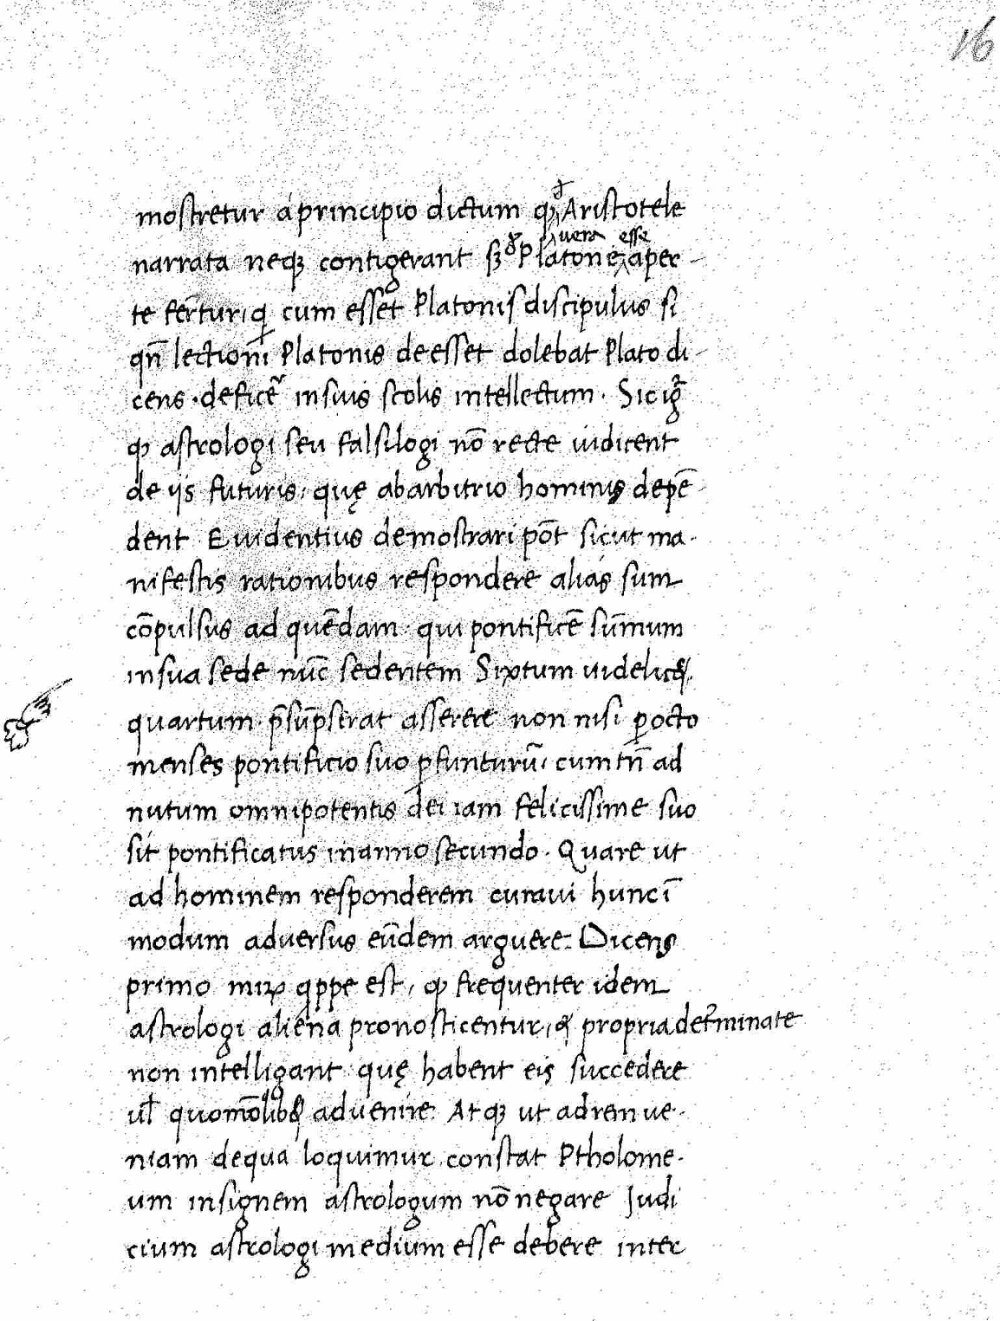 16
mostretur a principio dictum ꝙ Aristotele
uera esse
narrata neqꝫ contigerant sꝫ Platone aper-
te fert̄ur, qͥ cum esset Platonis discipulus si
qn̄ lectioni Platonis deesset dolebat Plato di-
cens · deficē in suis scolis intellectum · Sic igͬ
ꝙ astrologi seu falsilogi nō recte iudicent
de ijs futuris, quę ab arbitrio hominis depē-
dent Euidentius demostrari pōt sicut ma-
nifestis rationibus respondere alias sum
cōpulsus ad quēdam · qui pontificē sūmum
in sua sede nūc sedentem Sixtum uidelicꝫ
quartum · p̄sūpserat asserere non nisi ꝑ octo
menses pontificio suo ꝑfuncturū, cum tn̄ ad
nutum omnipotentis dei iam felicissime suo
sit pontificatus in anno secundo · Quare ut
ad hominem responderem curaui hunc ī
modum aduersus eūdem arguere: Dicens
primo miꝝ qppe est, ꝙ frequenter idem
astrologi aliena pronosticentur, qͥ propria det̄minate
non intelligant quę habent eis succedere
uł quomōlibꝫ aduenire: Atqꝫ ut ad rem ue-
niam de qua loquimur, constat Ptholome-
um insignem astrologum nō negare Judi
cium astrologi medium esse debere inter